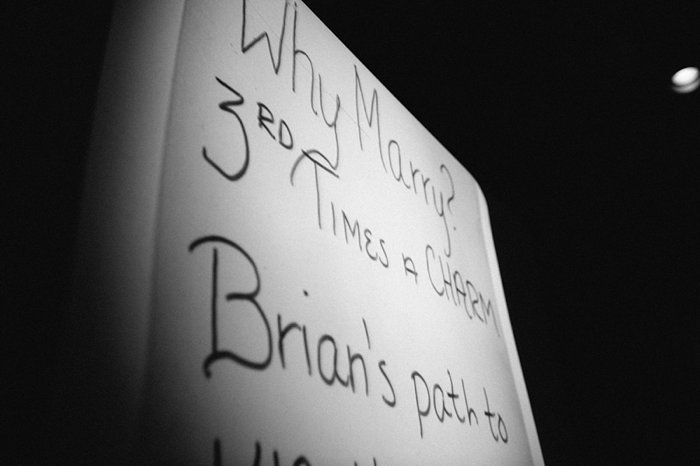 Why Marry?
3RD TIMES A CHARM
Brian's path to